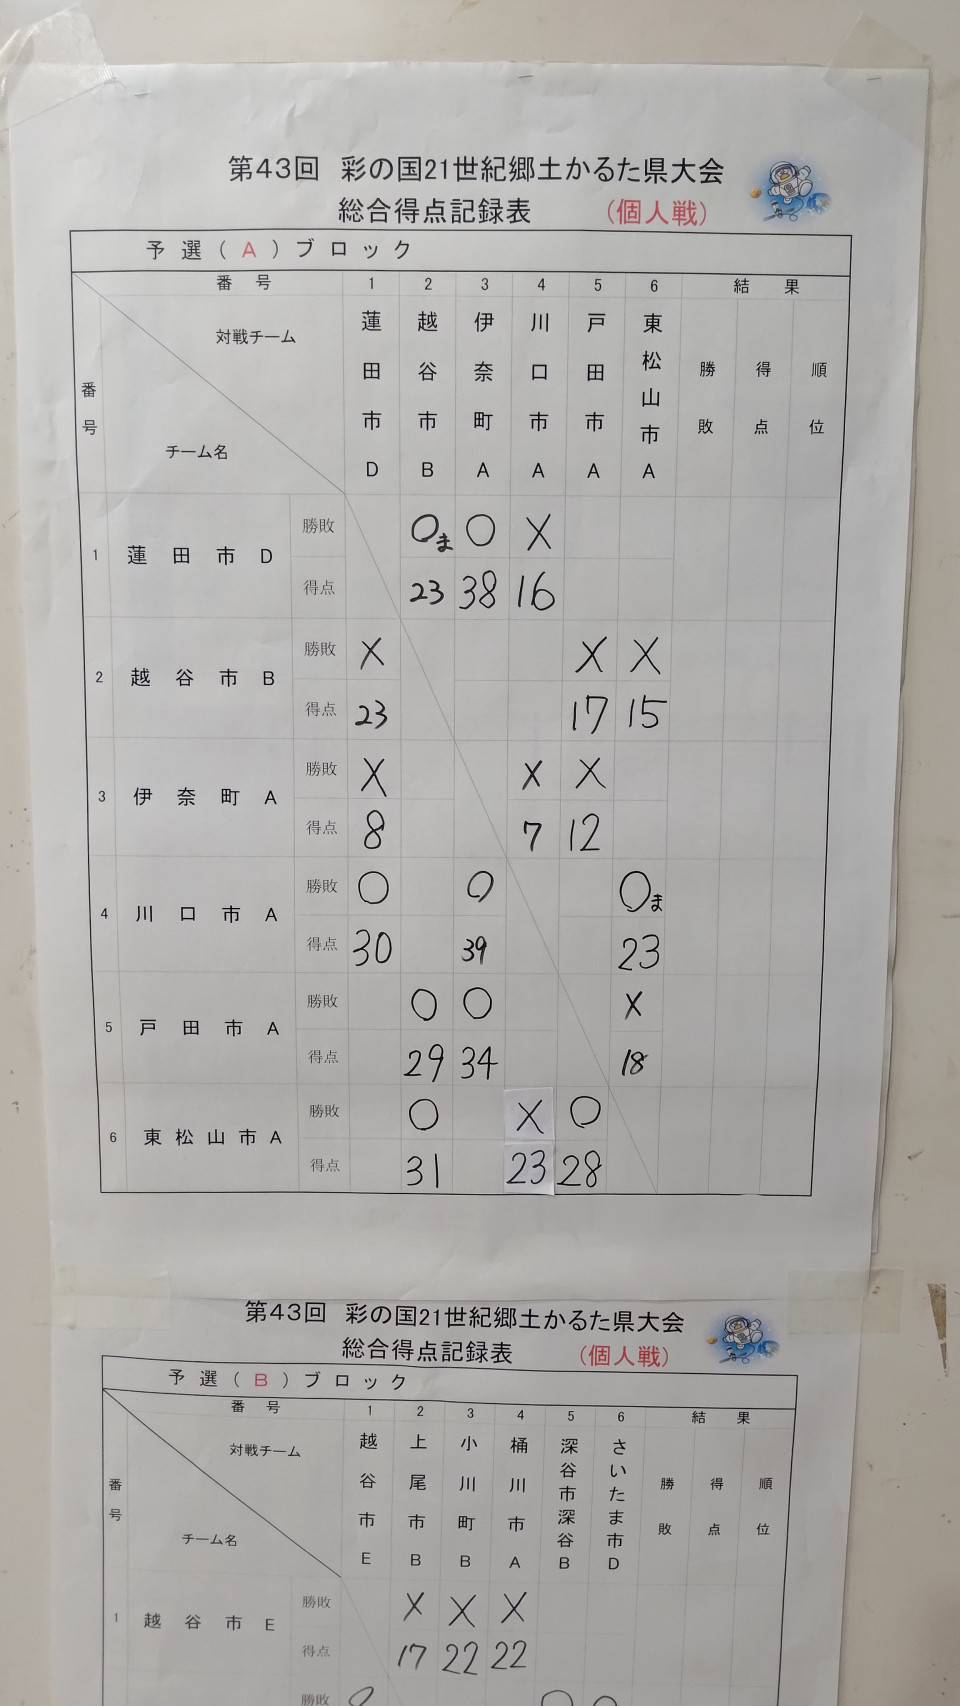 第43回 彩の国21世紀郷土かるた県大会
総合得点記録表 (個人戦)
予選(A)ブロック
番号 1 2 3 4 5 6 結果
対戦チーム 蓮田市D 越谷市B 伊奈町A 川口市A 戸田市A 東松山市A 勝敗 得点 順位
番号
チーム名
1 蓮田市D 勝敗 ○ま ○ ×
得点 23 38 16
2 越谷市B 勝敗 × × ×
得点 23 17 15
3 伊奈町A 勝敗 × × ×
得点 8 7 12
4 川口市A 勝敗 ○ ○ ○ま
得点 30 39 23
5 戸田市A 勝敗 ○ ○ ×
得点 29 34 18
6 東松山市A 勝敗 ○ × ○
得点 31 23 28
第43回 彩の国21世紀郷土かるた県大会
総合得点記録表 (個人戦)
予選(B)ブロック
番号 1 2 3 4 5 6 結果
対戦チーム 越谷市E 上尾市B 小川町B 桶川市A 深谷市深谷B さいたま市D 勝敗 得点 順位
番号
チーム名
1 越谷市E 勝敗 × × ×
得点 17 22 22
勝敗